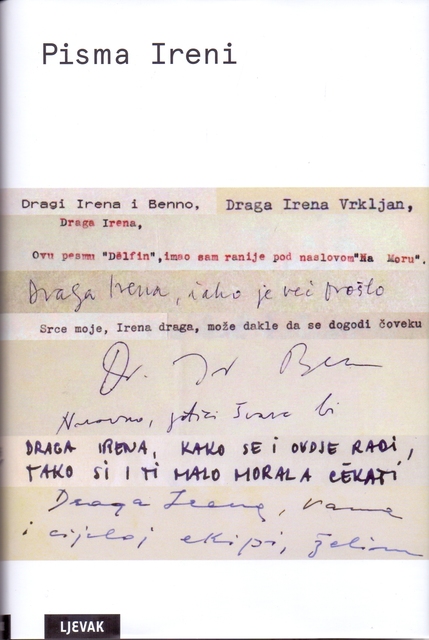 Pisma Ireni
Dragi Irena i Benno,
Draga Irena Vrkljan,
Draga Irena,
Ovu pesmu "Dèlfin", imao sam ranije pod naslovom "Na Moru".
Draga Irena, iako je već prošlo
Srce moje, Irena draga, može dakle da se dogodi čoveku
Dr.
bi
DRAGA IRENA, KAKO SE I OVDJE RADI,
TAKO SI I TI MALO MORALA ČEKATI
Draga Irena, Vama
i cijeloj ekipi, želim
LJEVAK